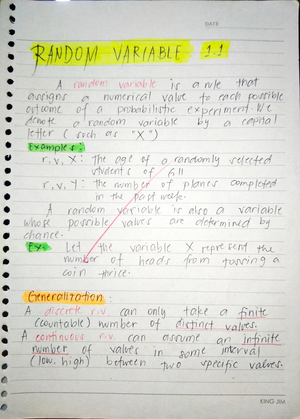 DATE
RANDOM VARIABLE 1.1
A random variable is a rule that
assigns a numerical value to each possible
outcome of a probabilistic experiment. We
denote a random variable by a capital
letter ( such as "X" )
Examples:
r.v. X: the age of a randomly selected
students of G11
r.v. Y: the number of planes completed
in the past week.
A random variable is also a variable
whose possible values are determined by
chance.
Ex: Let the variable X represent the
number of heads from tossing a
coin thrice.
Generalization:
A discrete r.v. can only take a finite
(countable) number of distinct values.
A continuous r.v. can assume an infinite
number of values in some interval
(low, high) between two specific valves.
KING JIM